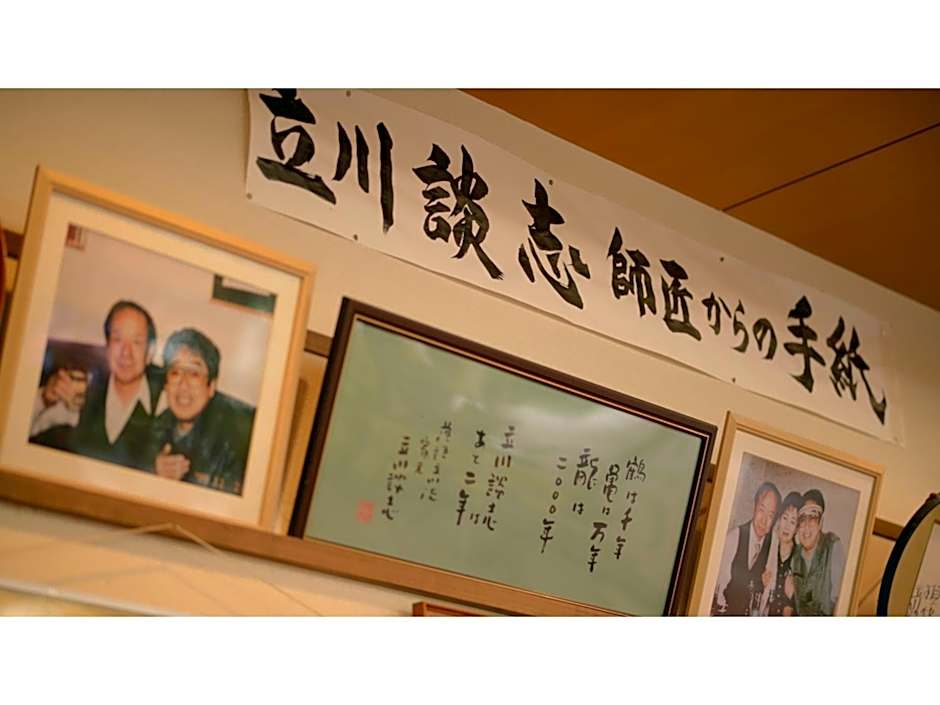 立川談志師匠からの手紙
鶴は千年
亀は万年
龍は
二〇〇〇年
立川談志
あと二年は
立川談志